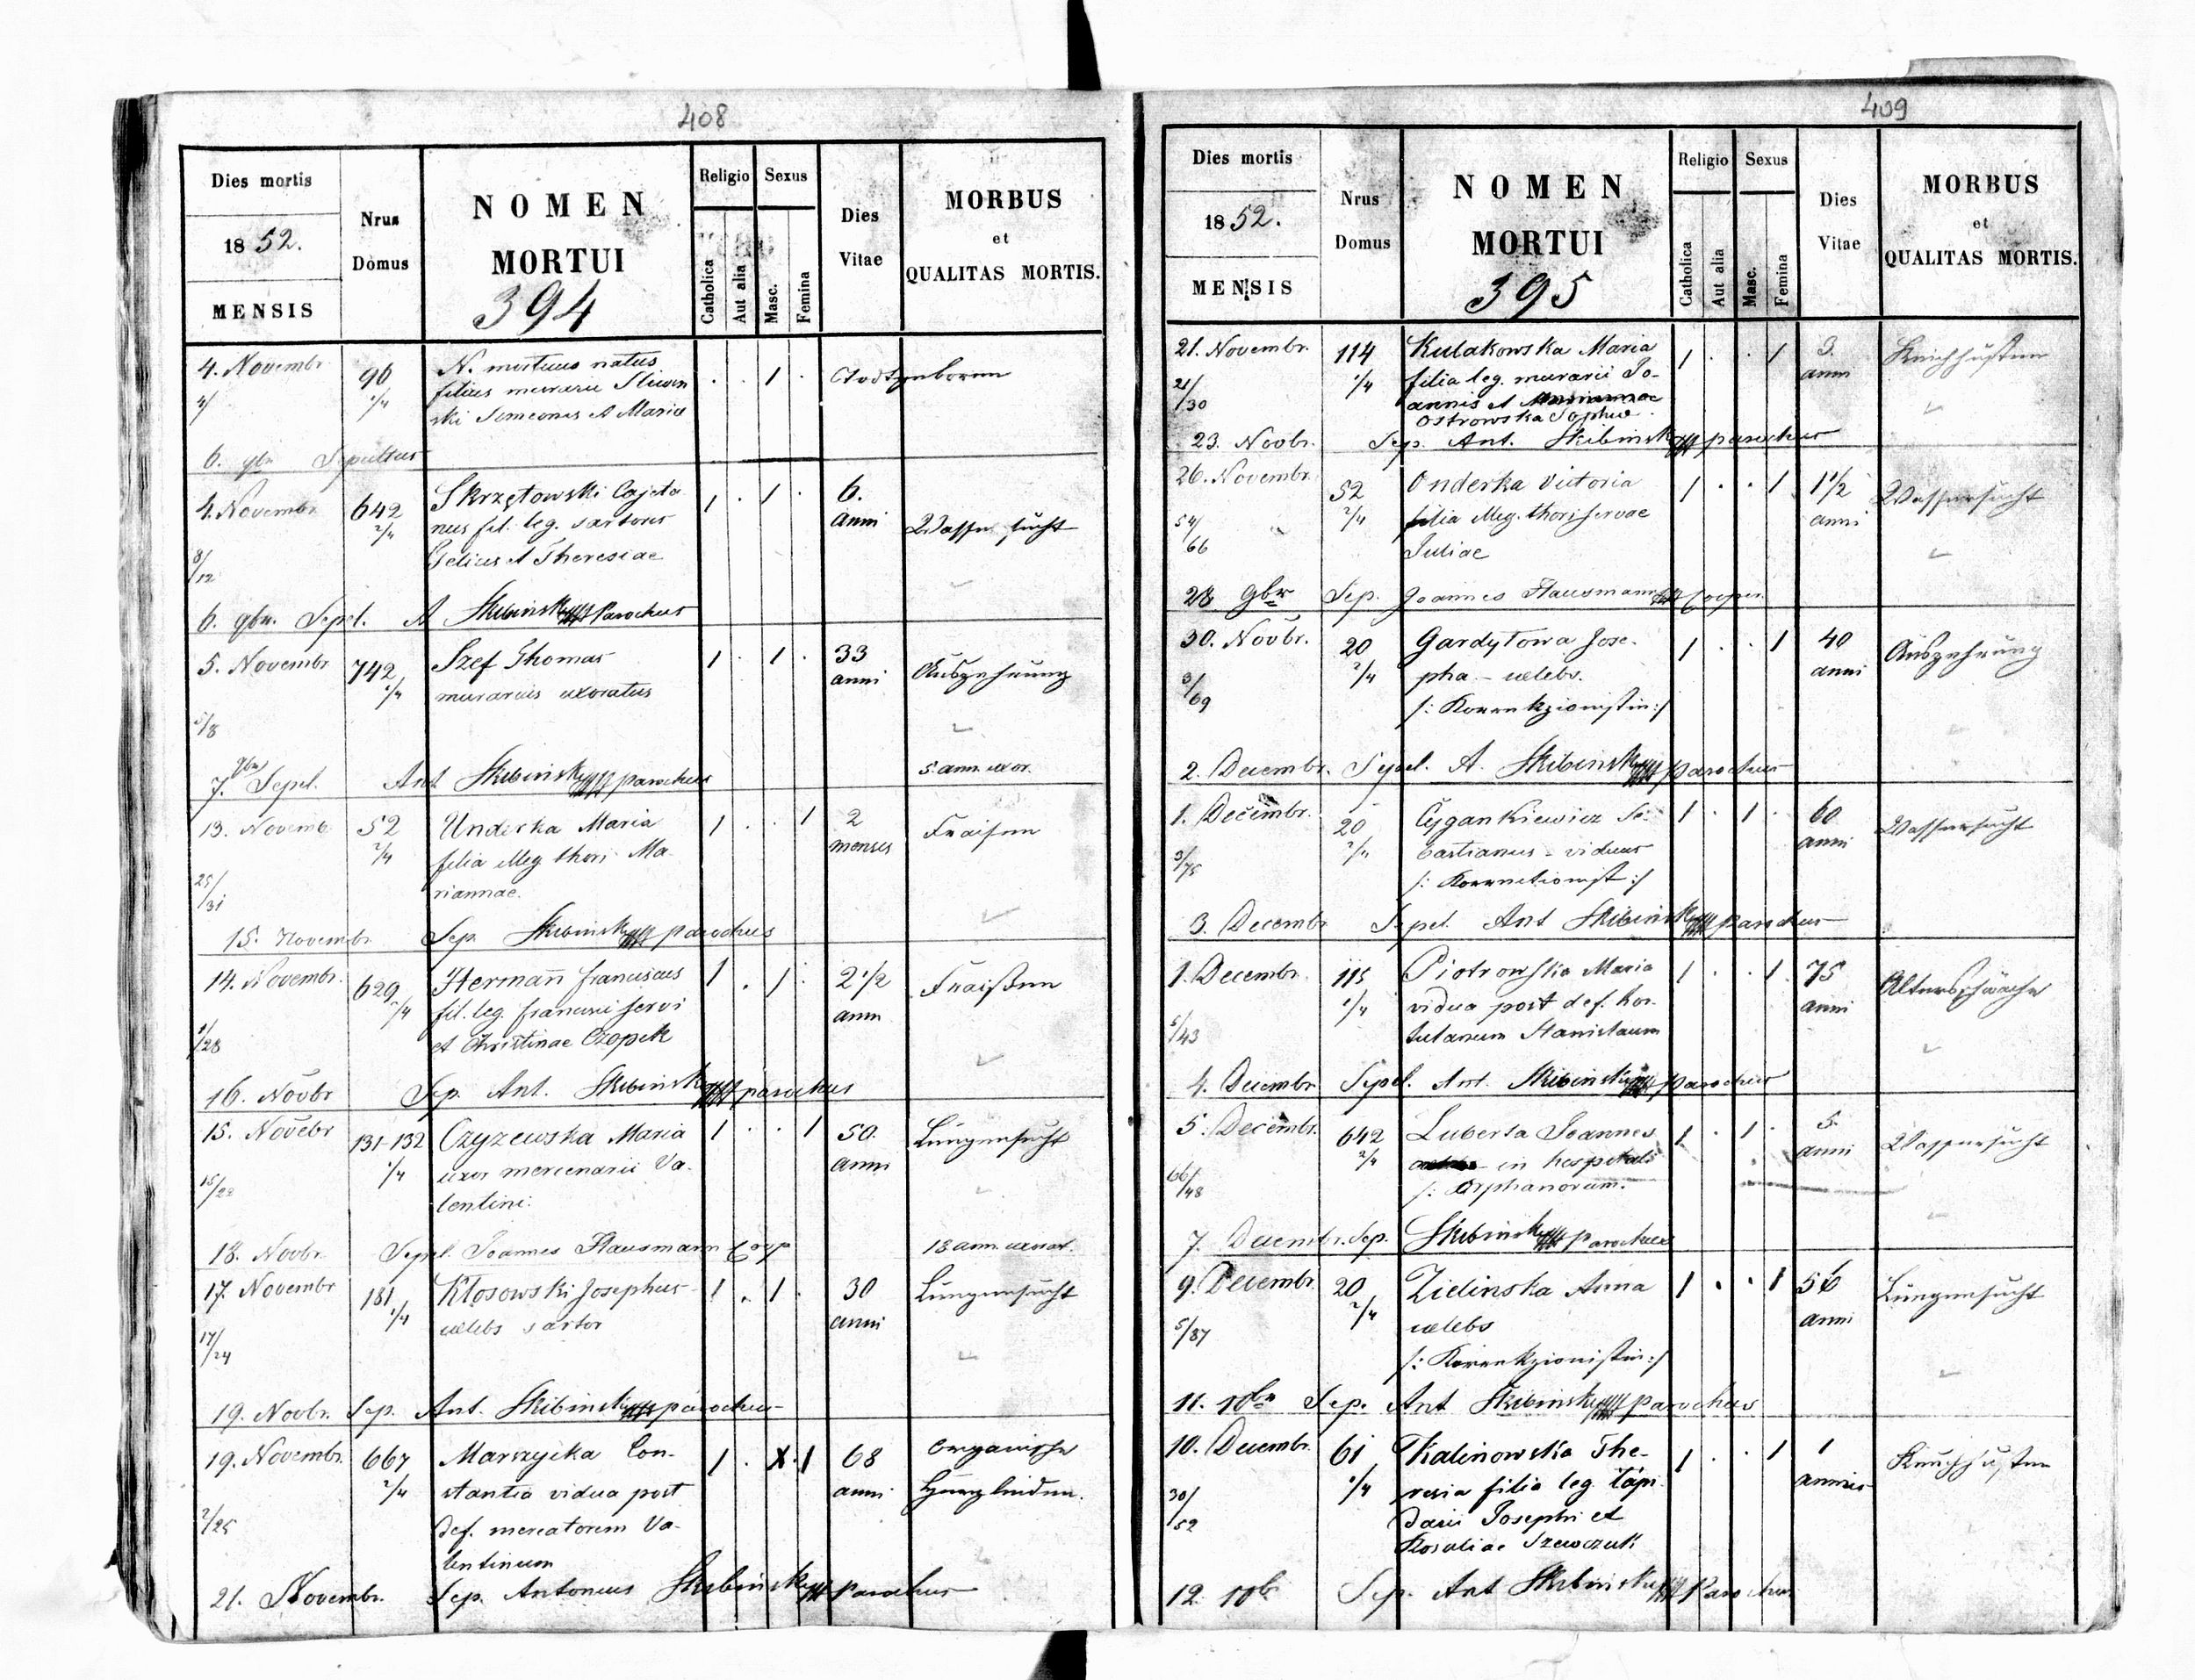 408
Dies mortis
1852.
MENSIS
Nrus
Domus
NOMEN
MORTUI
394
Religio
Sexus
Catholica
Aut alia
Masc.
Femina
Dies
Vitae
MORBUS
et
QUALITAS MORTIS.
4. Novembr. 96 N. mortuus natus 1 Todtgeboren
4/ 1/4 filius murarii Sliwin
ski Simeonis et Mariae
6. 9br Sepultus
4. Novembr 642 Skrzętowski Cajeta 1 . 1 . 6.
2/4 nus fil. leg. sartoris anni Wassersucht
8/12 et Theresiae
6. 9br. Sepel. A Skibinski Parochus
5. Novembr 742 Szef Thomas 1 . 1 . 33 Auszehrung
1/4 murarius uxoratus anni
5/8
5 ann. uxor.
7. 9br Sepel. Ant Skibinski parochus
13. Novemb 52 Underka Maria 1 . . 1 2 Fraisen
2/4 filia illeg thori Ma menses
25/31 riannae.
15. Novembr. Sep Skibinski parochus
14. Novembr. 629 Hermañ Franciscus 1 . 1 . 2 1/2 Fraißen
2/4 fil. leg. Francisci servi anni
1/28 et Christinae Czopek
16. Novbr Sep. Ant. Skibinski parochus
15. Novebr 131-132 Czyzewska Maria 1 . . 1 50. Lungensucht
1/4 uxor mercenarii Va- anni
15/22 lentini.
18 ann. uxorat.
18. Novbr. Sepel. Joannes Hausmann Coop
17. Novembr 181 Kłosowski Josephus 1 . 1 . 30 Lungensucht
1/4 celebs sartor anni
17/24
19. Novbr. Sep. Ant. Skibinski parochus
19. Novembr. 667 Marszycka Con- 1 . x . 1 68 organische
2/4 stantia vidua post anni Herzleiden.
2/25 def. mercatorem Va-
lentinum
21. Novembr. Sep. Antonius Skibinski parochus
409
Dies mortis
1852.
MENSIS
Nrus
Domus
NOMEN
MORTUI
395
Religio
Sexus
Catholica
Aut alia
Masc.
Femina
Dies
Vitae
MORBUS
et
QUALITAS MORTIS.
21. Novembr. 114 Kulakowska Maria 1 . . 1 3. Keichhusten
1/4 filia leg. murarii Jo- anni
21/30 annis et
Ostrowska Sophiae
23. Novbr. Sep. Ant. Skibinski parochus
26. Novembr. 52 Onderka Victoria 1 . . 1 1 1/2 Wassersucht
2/4 filia illeg. thori servae anni
54/66 Juliae
28 9br Sep. Joannes Hausmann Cooper.
30. Novbr. 20 Gardytowa Jose- 1 . . 1 40 Auszehrung
2/4 pha - celebs. anni
3/69 /: Korrekzionistin :/
2. Decembr. Sepel. A. Skibinski parochus
1. Decembr. 20 Cygankiewicz Se- 1 . 1 . 60 Wassersucht
2/4 bastianus - viduus anni
3/75 /: Korrectionist :/
3. Decembr Sepel. Ant Skibinski parochus
1. Decembr. 115 Piotrowska Maria 1 . . 1 75 Altersschwäche
1/4 vidua post def. hor- anni
5/43 tulanum Stanislaum
4. Decembr. Sepel. Ant. Skibinski parochus
5. Decembr. 642 Luberta Joannes 1 . 1 . 5. Wassersucht
2/4 in hospitali anni
66/48 /: Orphanorum.
7. Decembr. Sep. Skibinski parochus
9. Decembr. 20 Zielinska Anna 1 . . 1 56 Lungensucht
2/4 celebs anni
5/87 /: Korrekzionistin :/
11. 10br Sep. Ant Skibinski parochus
10. Decembr. 61 Kalinowska The- 1 . . 1 1 Keuchhusten
1/4 resia filia leg. lapi- annus
30/52 darii Josephi et
Rosaliae Szewczuk
12 10br Sep. Ant Skibinski Parochus